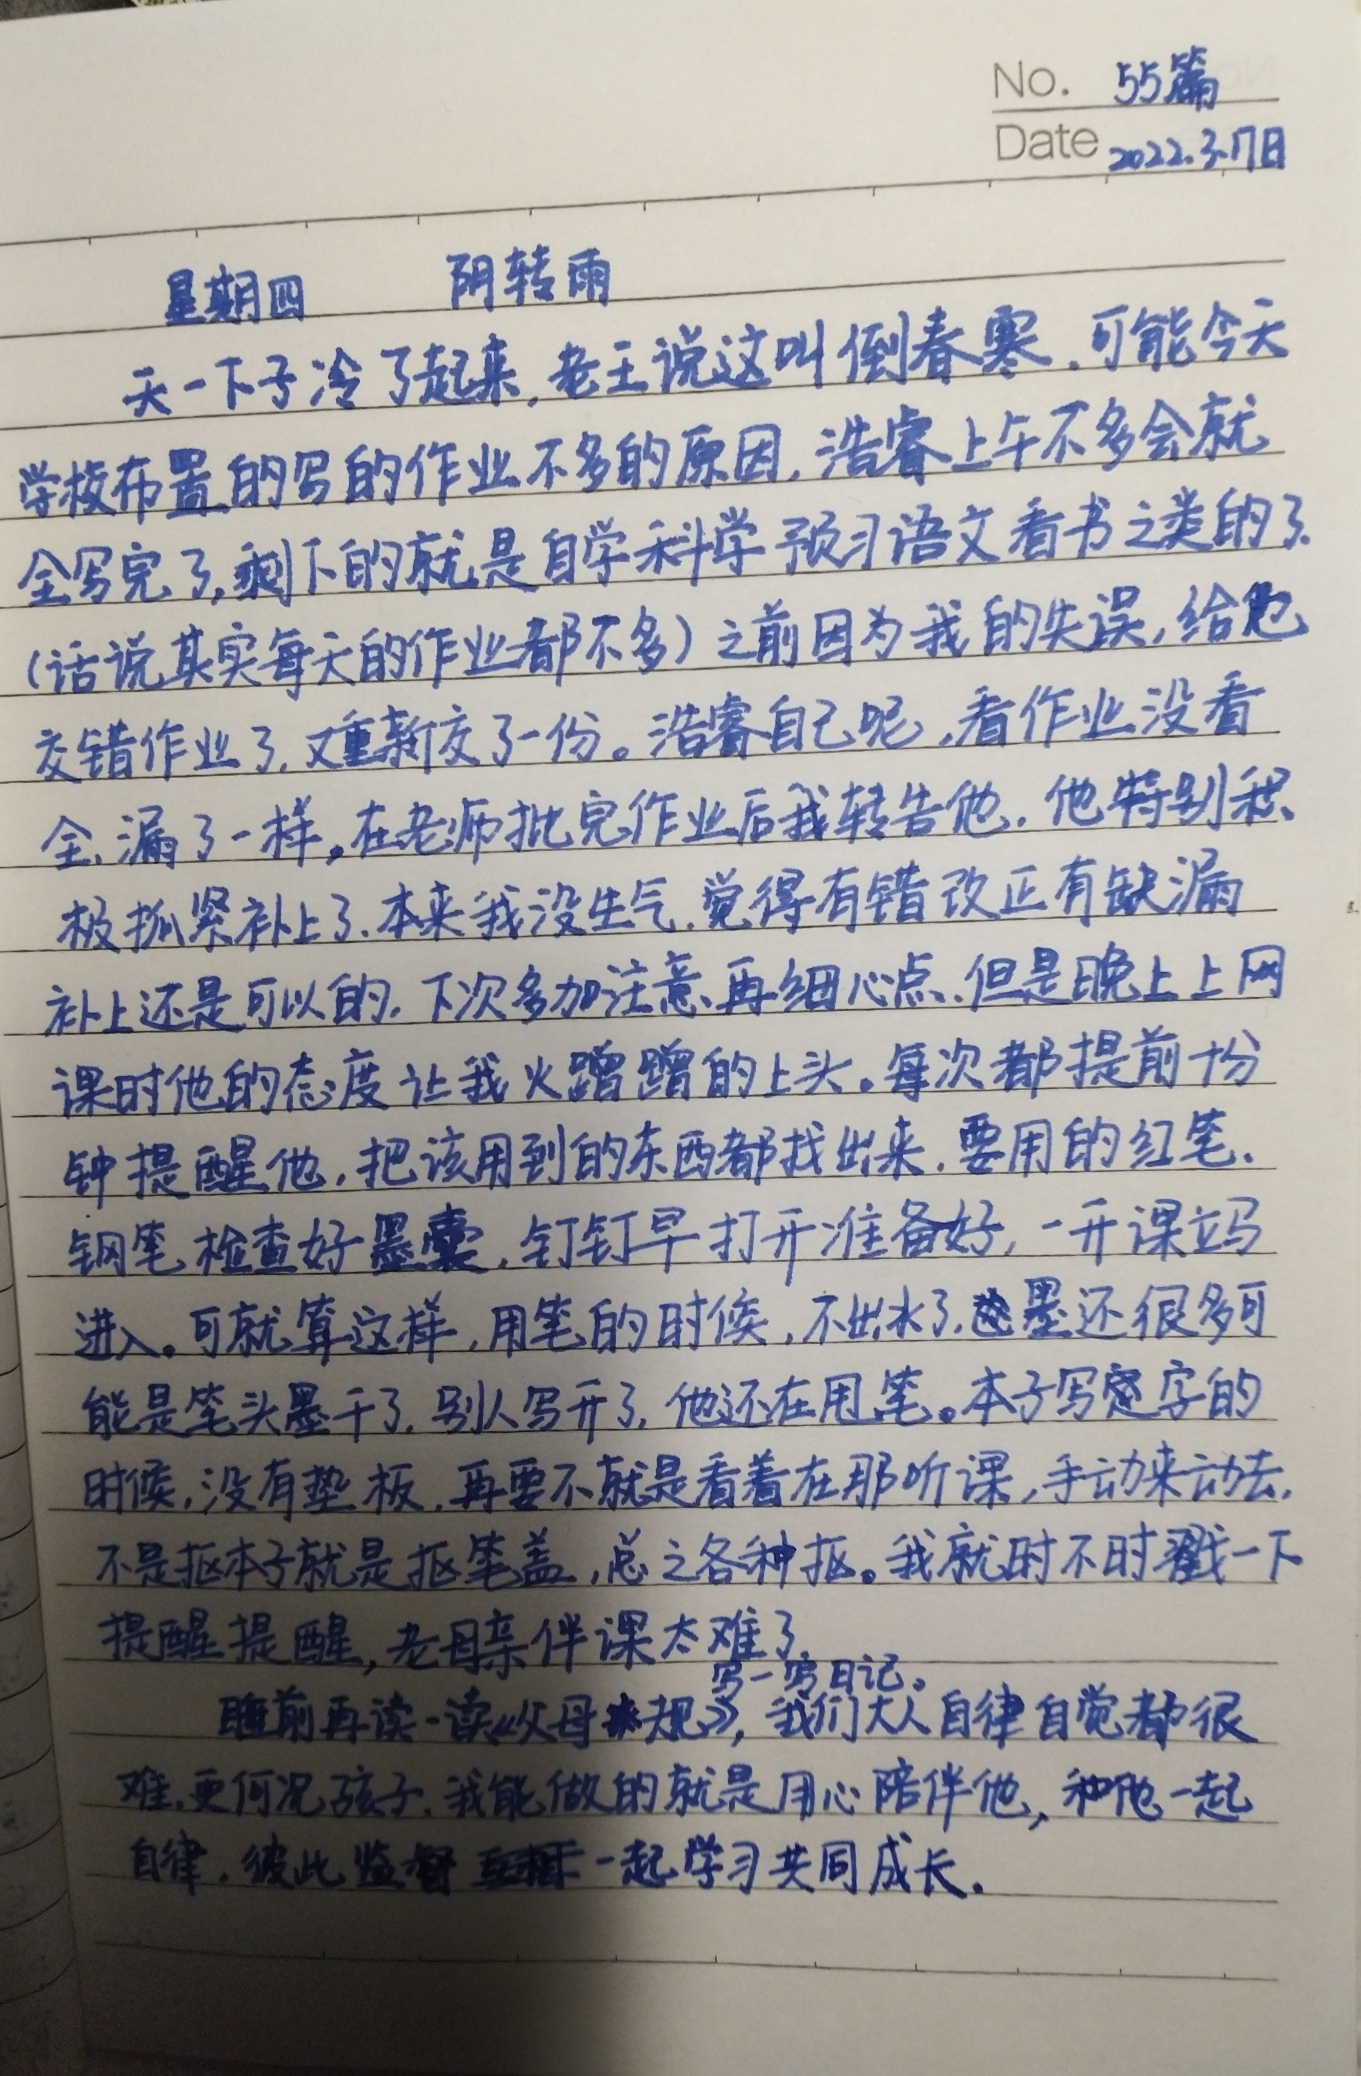 No. 55篇
Date 2022.3.17日
星期四 阴转雨
天一下子冷了起来,老王说这叫倒春寒,可能今天
学校布置的写的作业不多的原因,浩睿上午不多会就
全写完了,剩下的就是自学科学预习语文看书之类的了.
(话说其实每天的作业都不多)之前因为我的失误,给他
交错作业了,又重新交了一份。浩睿自己呢,看作业没看
全、漏了一样。在老师批完作业后我转告他,他特别积
极抓紧补上了.本来我没生气,觉得有错改正有缺漏
补上还是可以的,下次多加注意、再细心点,但是晚上上网
课时他的态度让我火蹭蹭的上头。每次都提前十分
钟提醒他,把该用到的东西都找出来,要用的红笔、
钢笔检查好墨囊,钉钉早打开准备好,一开课立马
进入。可就算这样,用笔的时候,不出水了,墨还很多可
能是笔头墨干了,别人写开了,他还在甩笔。本子写字的
时候,没有垫板,再要不就是看着在那听课,手动来动去,
不是抠本子就是抠笔盖,总之各种抠。我就时不时戳一下
提醒提醒,老母亲伴课太难了.
写一写日记。
睡前再读一读《父母规》,我们大人自律自觉都很
难,更何况孩子,我能做的就是用心陪伴他,和他一起
自律,彼此监督一起学习共同成长.